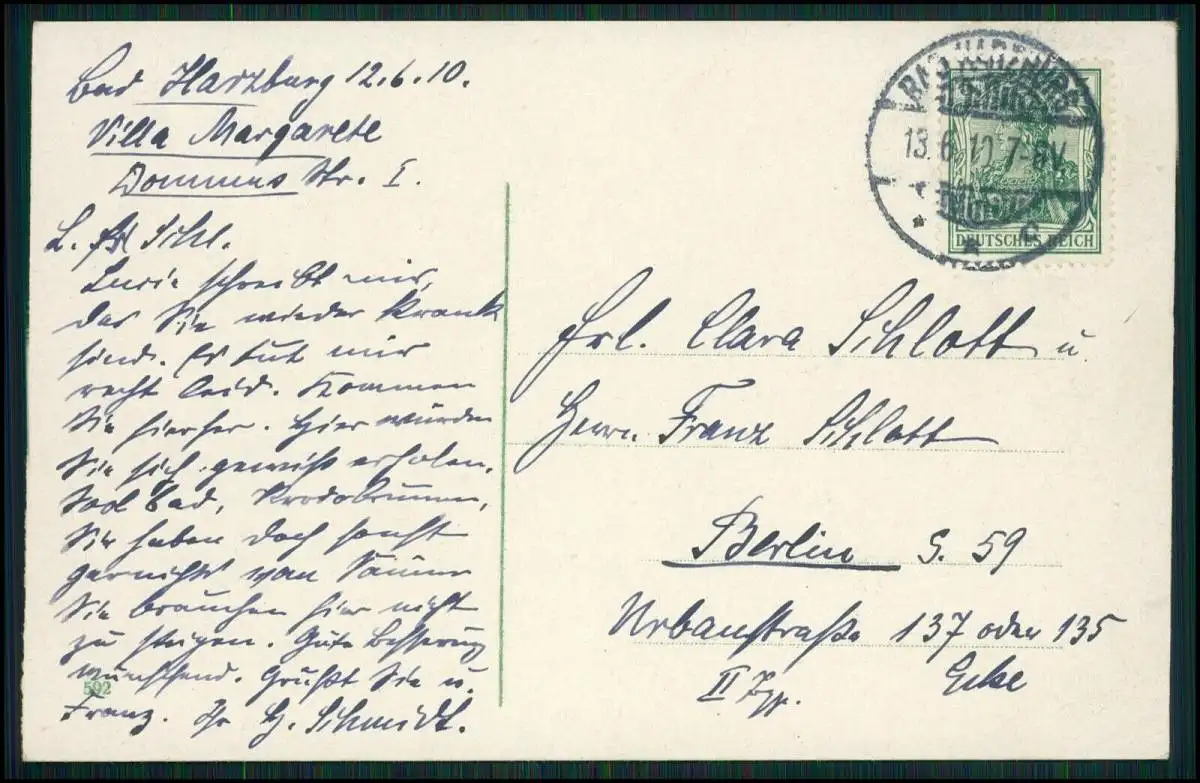 Bad Harzburg 12.6.10.
Villa Margarete
Dommes Str. I.
L. Frl Schl.
Lucie schreibt mir,
das Sie wieder krank
sind. Es tut mir
recht leid. Kommen
Sie hierher. Hier würden
Sie sich gewiß erholen.
Sool Bad, Krodobrunnen,
Sie haben doch sonst
garnichts von Sommer
Sie brauchen hier nicht
zu steigen. Gute Besserung
wünschend. Grüßt Sie u.
Franz. Ihr H. Schmidt.
592
BAD HARZBURG
13.6.10.7-8V.
* * C
DEUTSCHES REICH
Frl. Clara Schlott u
Herrn Franz Schlott
Berlin S. 59
Urbanstraße 137 oder 135
II Trp. Ecke